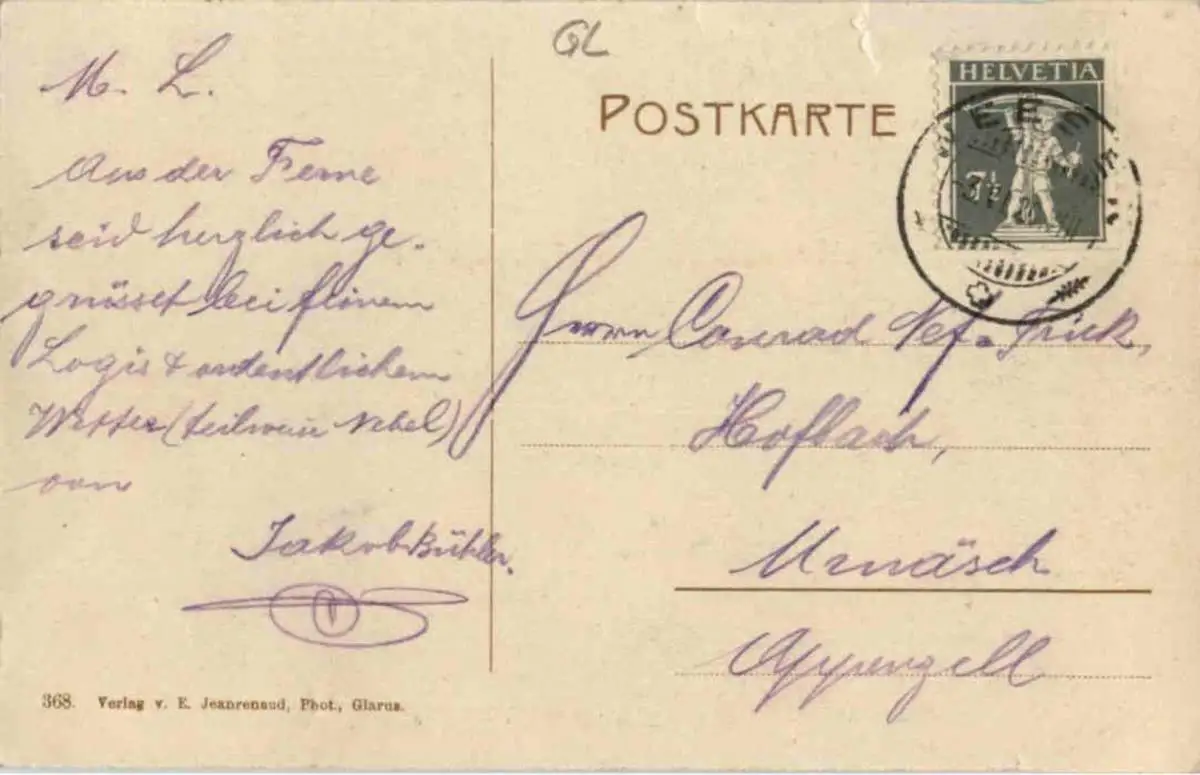 GL
POSTKARTE
HELVETIA
7½
WEESEN
M. L.
Aus der Ferne
seid herzlich ge-
grüsset bei feinem
Logis & ordentlichem
Wetter (teilweise Nebel)
von
Jakob Bühler.
Herrn Conrad Nef-Frick,
Hofbach,
Urnäsch
Appenzell
368. Verlag v. E. Jeanrenaud, Phot., Glarus.